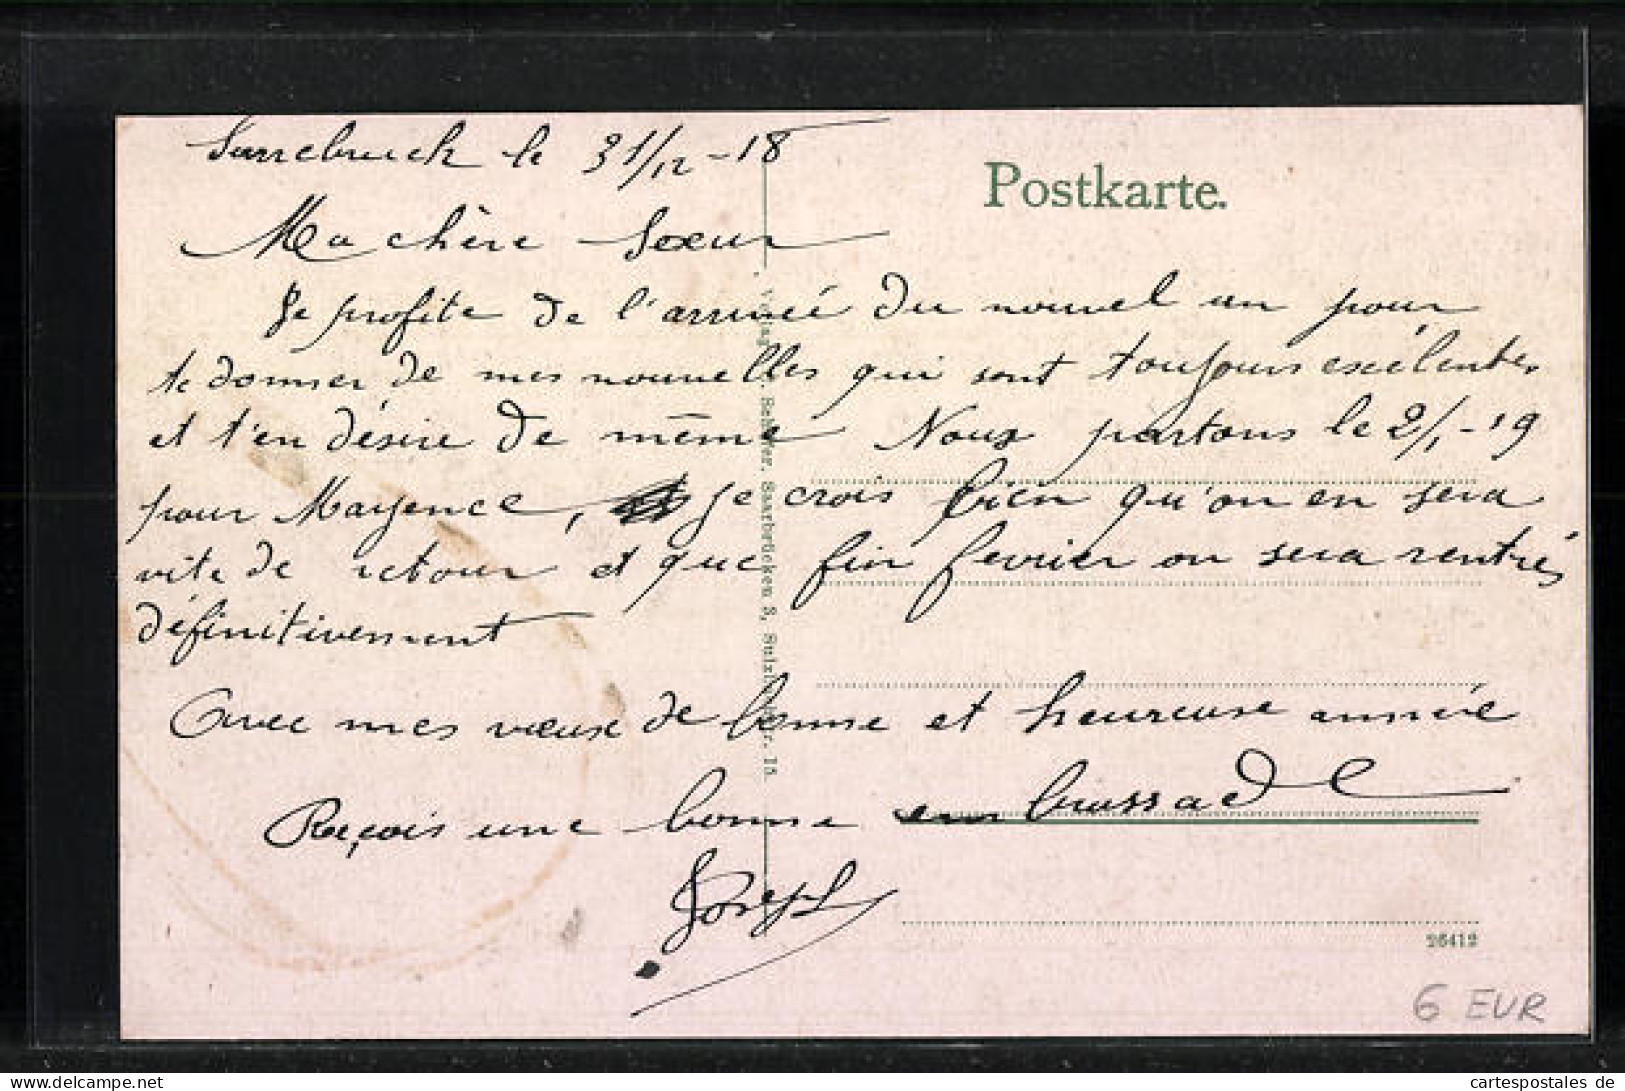 Sarrebruck le 31/12-18
Postkarte.
Ma chère Soeur
Je profite de l'arrivée du nouvel an pour
te donner de mes nouvelles qui sont toujours excélentes
et t'en désire de même Nous partons le 2/1-19
pour Mayence, je crois bien qu'on en sera
vite de retour et que fin fevrier on sera rentrés
définitivement
Avec mes vœux de bonne et heureuse année
Reçois une bonne embrassade
Joseph
Verlag Saarbrücken 3, 15
26412
6 EUR
www.delcampe.net
cartespostales de